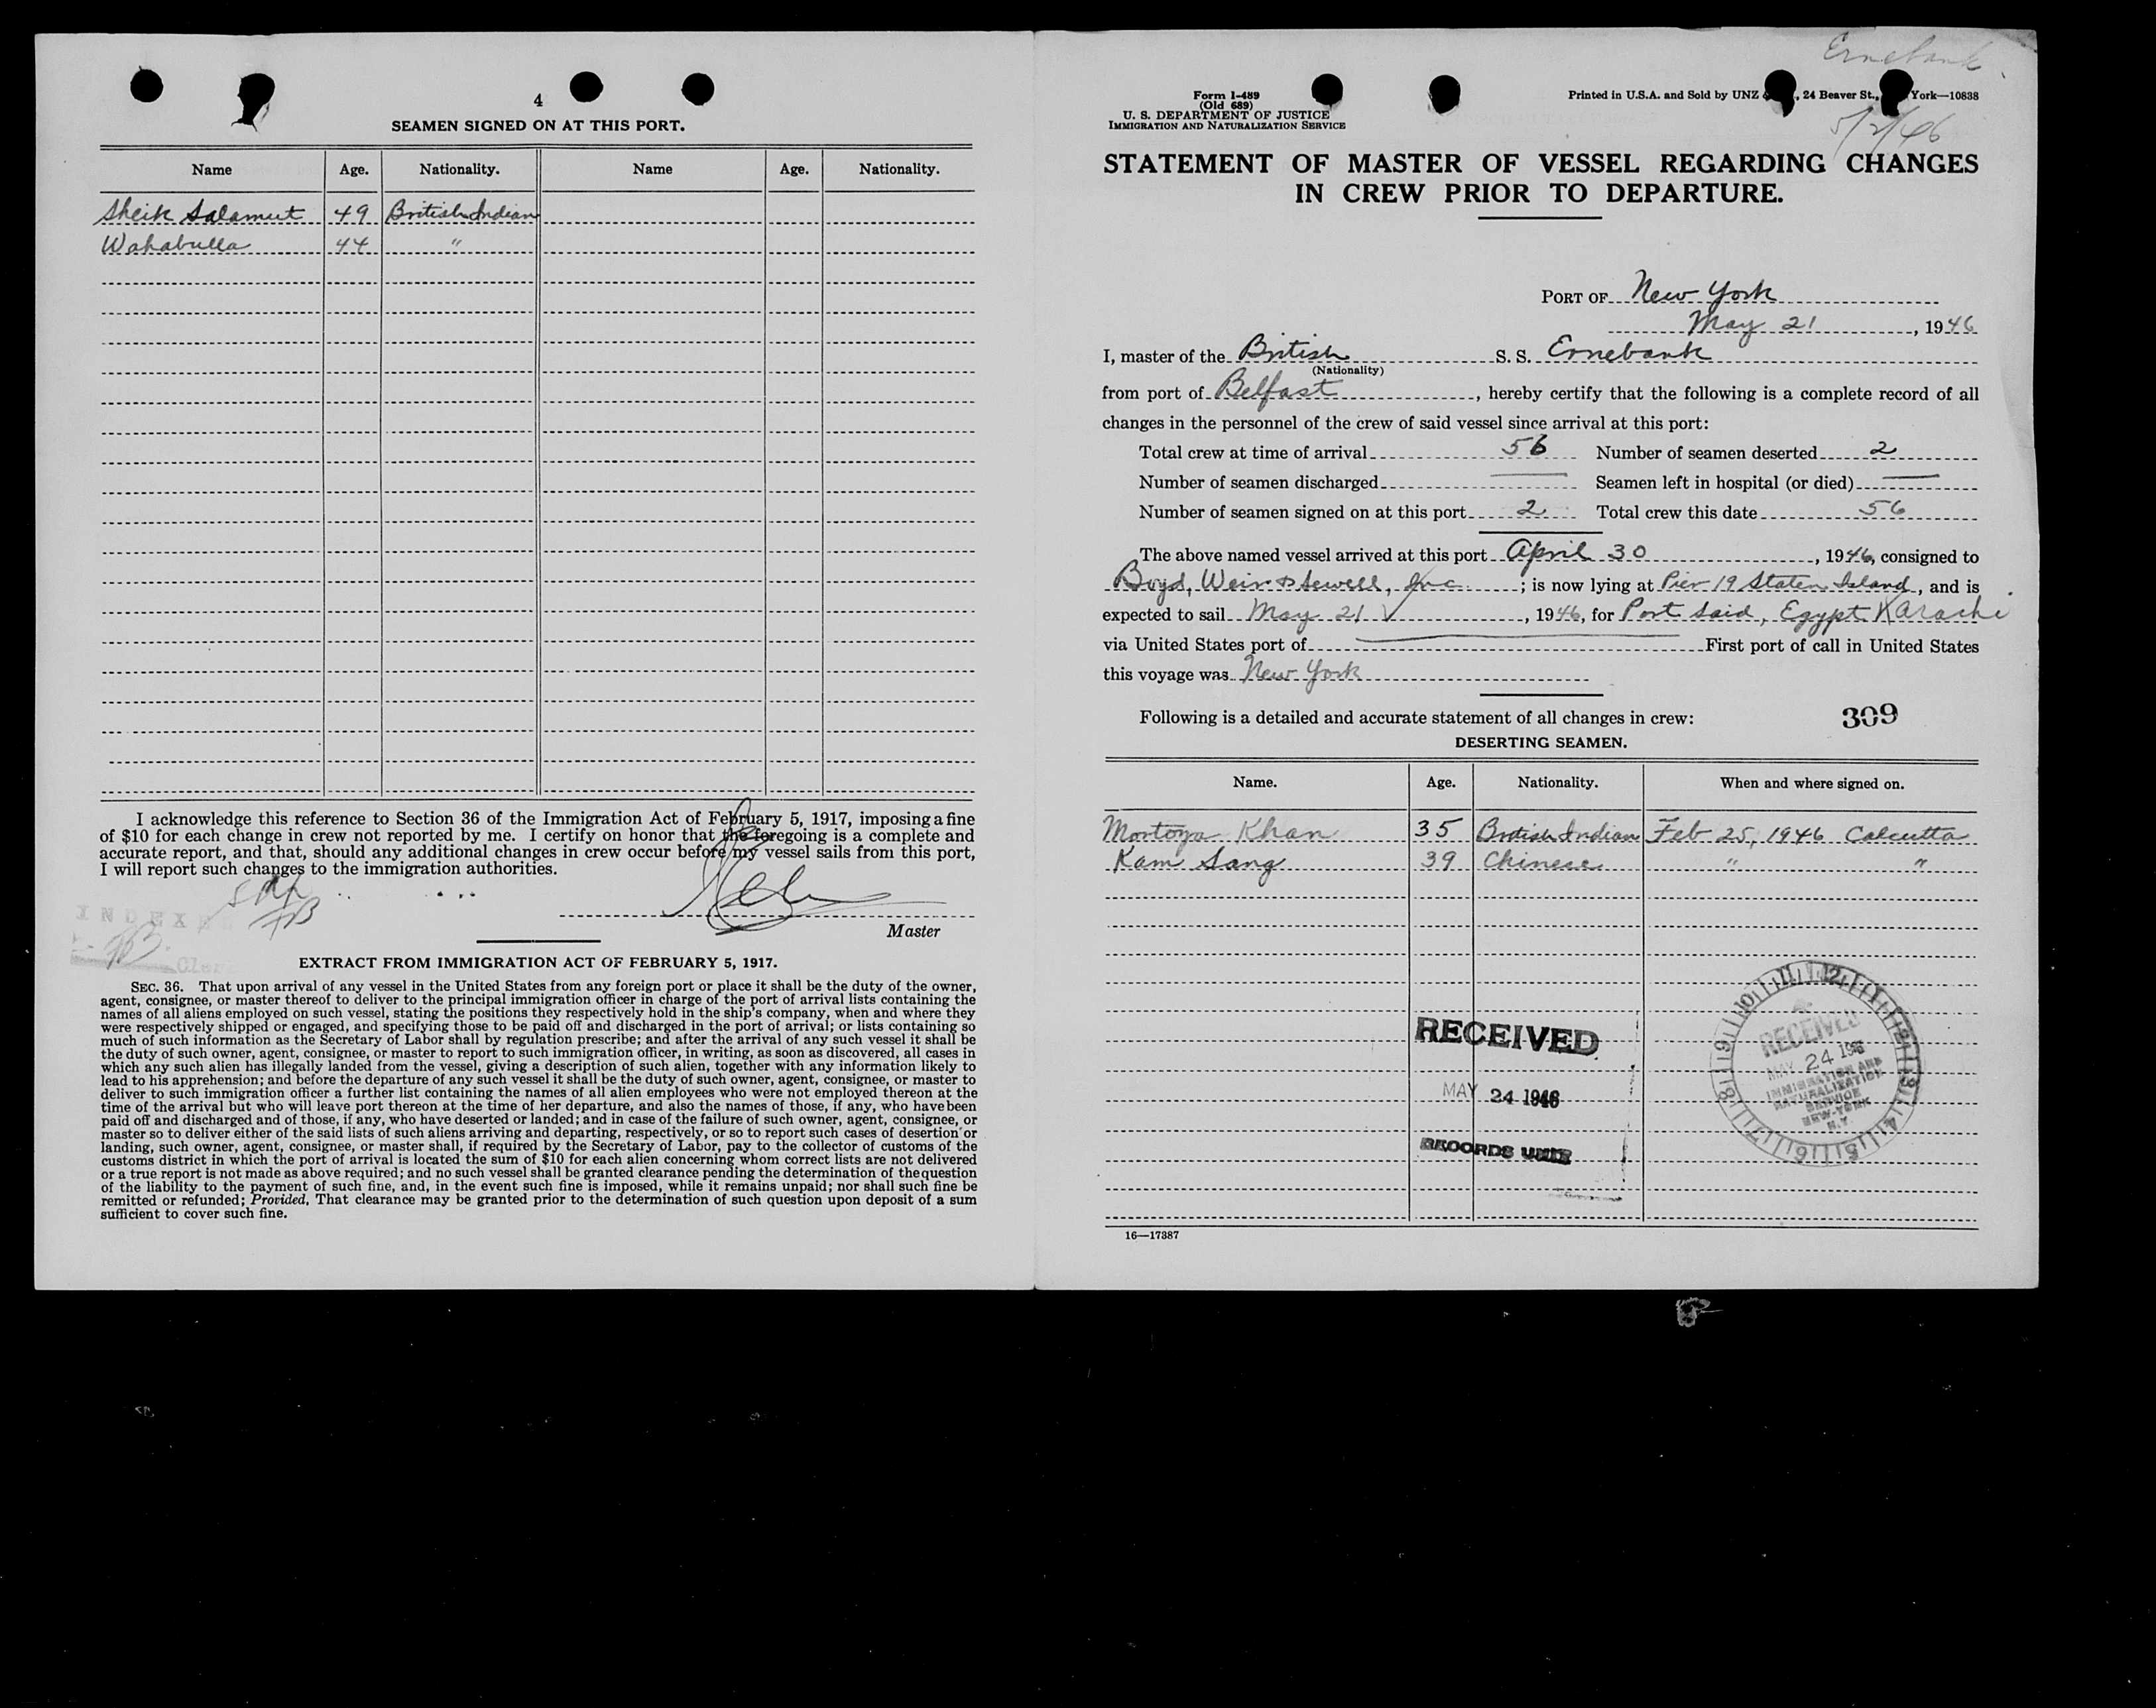 4
SEAMEN SIGNED ON AT THIS PORT.
Name Age. Nationality. Name Age. Nationality.
Sheik Salamut 49 British Indian
Wahabulla 44 "
I acknowledge this reference to Section 36 of the Immigration Act of February 5, 1917, imposing a fine
of $10 for each change in crew not reported by me. I certify on honor that the foregoing is a complete and
accurate report, and that, should any additional changes in crew occur before my vessel sails from this port,
I will report such changes to the immigration authorities.
Master
EXTRACT FROM IMMIGRATION ACT OF FEBRUARY 5, 1917.
SEC. 36. That upon arrival of any vessel in the United States from any foreign port or place it shall be the duty of the owner,
agent, consignee, or master thereof to deliver to the principal immigration officer in charge of the port of arrival lists containing the
names of all aliens employed on such vessel, stating the positions they respectively hold in the ship's company, when and where they
were respectively shipped or engaged, and specifying those to be paid off and discharged in the port of arrival; or lists containing so
much of such information as the Secretary of Labor shall by regulation prescribe; and after the arrival of any such vessel it shall be
the duty of such owner, agent, consignee, or master to report to such immigration officer, in writing, as soon as discovered, all cases in
which any such alien has illegally landed from the vessel, giving a description of such alien, together with any information likely to
lead to his apprehension; and before the departure of any such vessel it shall be the duty of such owner, agent, consignee, or master to
deliver to such immigration officer a further list containing the names of all alien employees who were not employed thereon at the
time of the arrival but who will leave port thereon at the time of her departure, and also the names of those, if any, who have been
paid off and discharged and of those, if any, who have deserted or landed; and in case of the failure of such owner, agent, consignee, or
master so to deliver either of the said lists of such aliens arriving and departing, respectively, or so to report such cases of desertion or
landing, such owner, agent, consignee, or master shall, if required by the Secretary of Labor, pay to the collector of customs of the
customs district in which the port of arrival is located the sum of $10 for each alien concerning whom correct lists are not delivered
or a true report is not made as above required; and no such vessel shall be granted clearance pending the determination of the question
of the liability to the payment of such fine, and, in the event such fine is imposed, while it remains unpaid; nor shall such fine be
remitted or refunded; Provided, That clearance may be granted prior to the determination of such question upon deposit of a sum
sufficient to cover such fine.
Ernebank
Form I-489
(Old 689)
U. S. DEPARTMENT OF JUSTICE
IMMIGRATION AND NATURALIZATION SERVICE
Printed in U.S.A. and Sold by UNZ , 24 Beaver St., York—10838
STATEMENT OF MASTER OF VESSEL REGARDING CHANGES
IN CREW PRIOR TO DEPARTURE.
PORT OF New York
May 21, 1946
I, master of the British S. S. Ernebank
(Nationality)
from port of Belfast, hereby certify that the following is a complete record of all
changes in the personnel of the crew of said vessel since arrival at this port:
Total crew at time of arrival 56 Number of seamen deserted 2
Number of seamen discharged — Seamen left in hospital (or died) —
Number of seamen signed on at this port 2 Total crew this date 56
The above named vessel arrived at this port April 30, 1946, consigned to
Boyd, Weir & Sewell, Inc.; is now lying at Pier 19 Staten Island, and is
expected to sail May 21, 1946, for Port Said, Egypt Karachi
via United States port of — First port of call in United States
this voyage was New York
Following is a detailed and accurate statement of all changes in crew: 309
DESERTING SEAMEN.
Name. Age. Nationality. When and where signed on.
Mortoza Khan 35 British Indian Feb 25, 1946 Calcutta
Kam Sang 39 Chinese " "
RECEIVED
MAY 24 1946
RECORDS UNIT
RECEIVED
MAY 24 1946
IMMIGRATION AND
NATURALIZATION
SERVICE
NEW YORK
N.Y.
16—17387